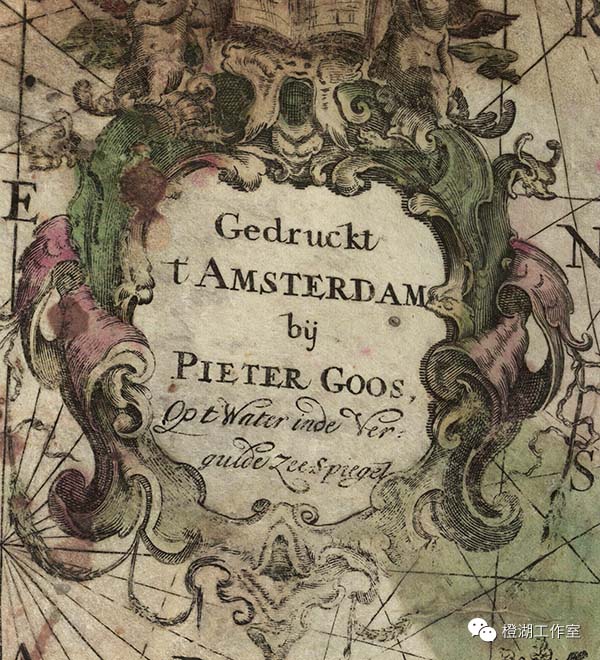 R
E
N
Gedruckt
t AMSTERDAM
bij
PIETER GOOS,
Op t Water inde Ver:
gulde Zee Spiegel
S
A
橙湖工作室